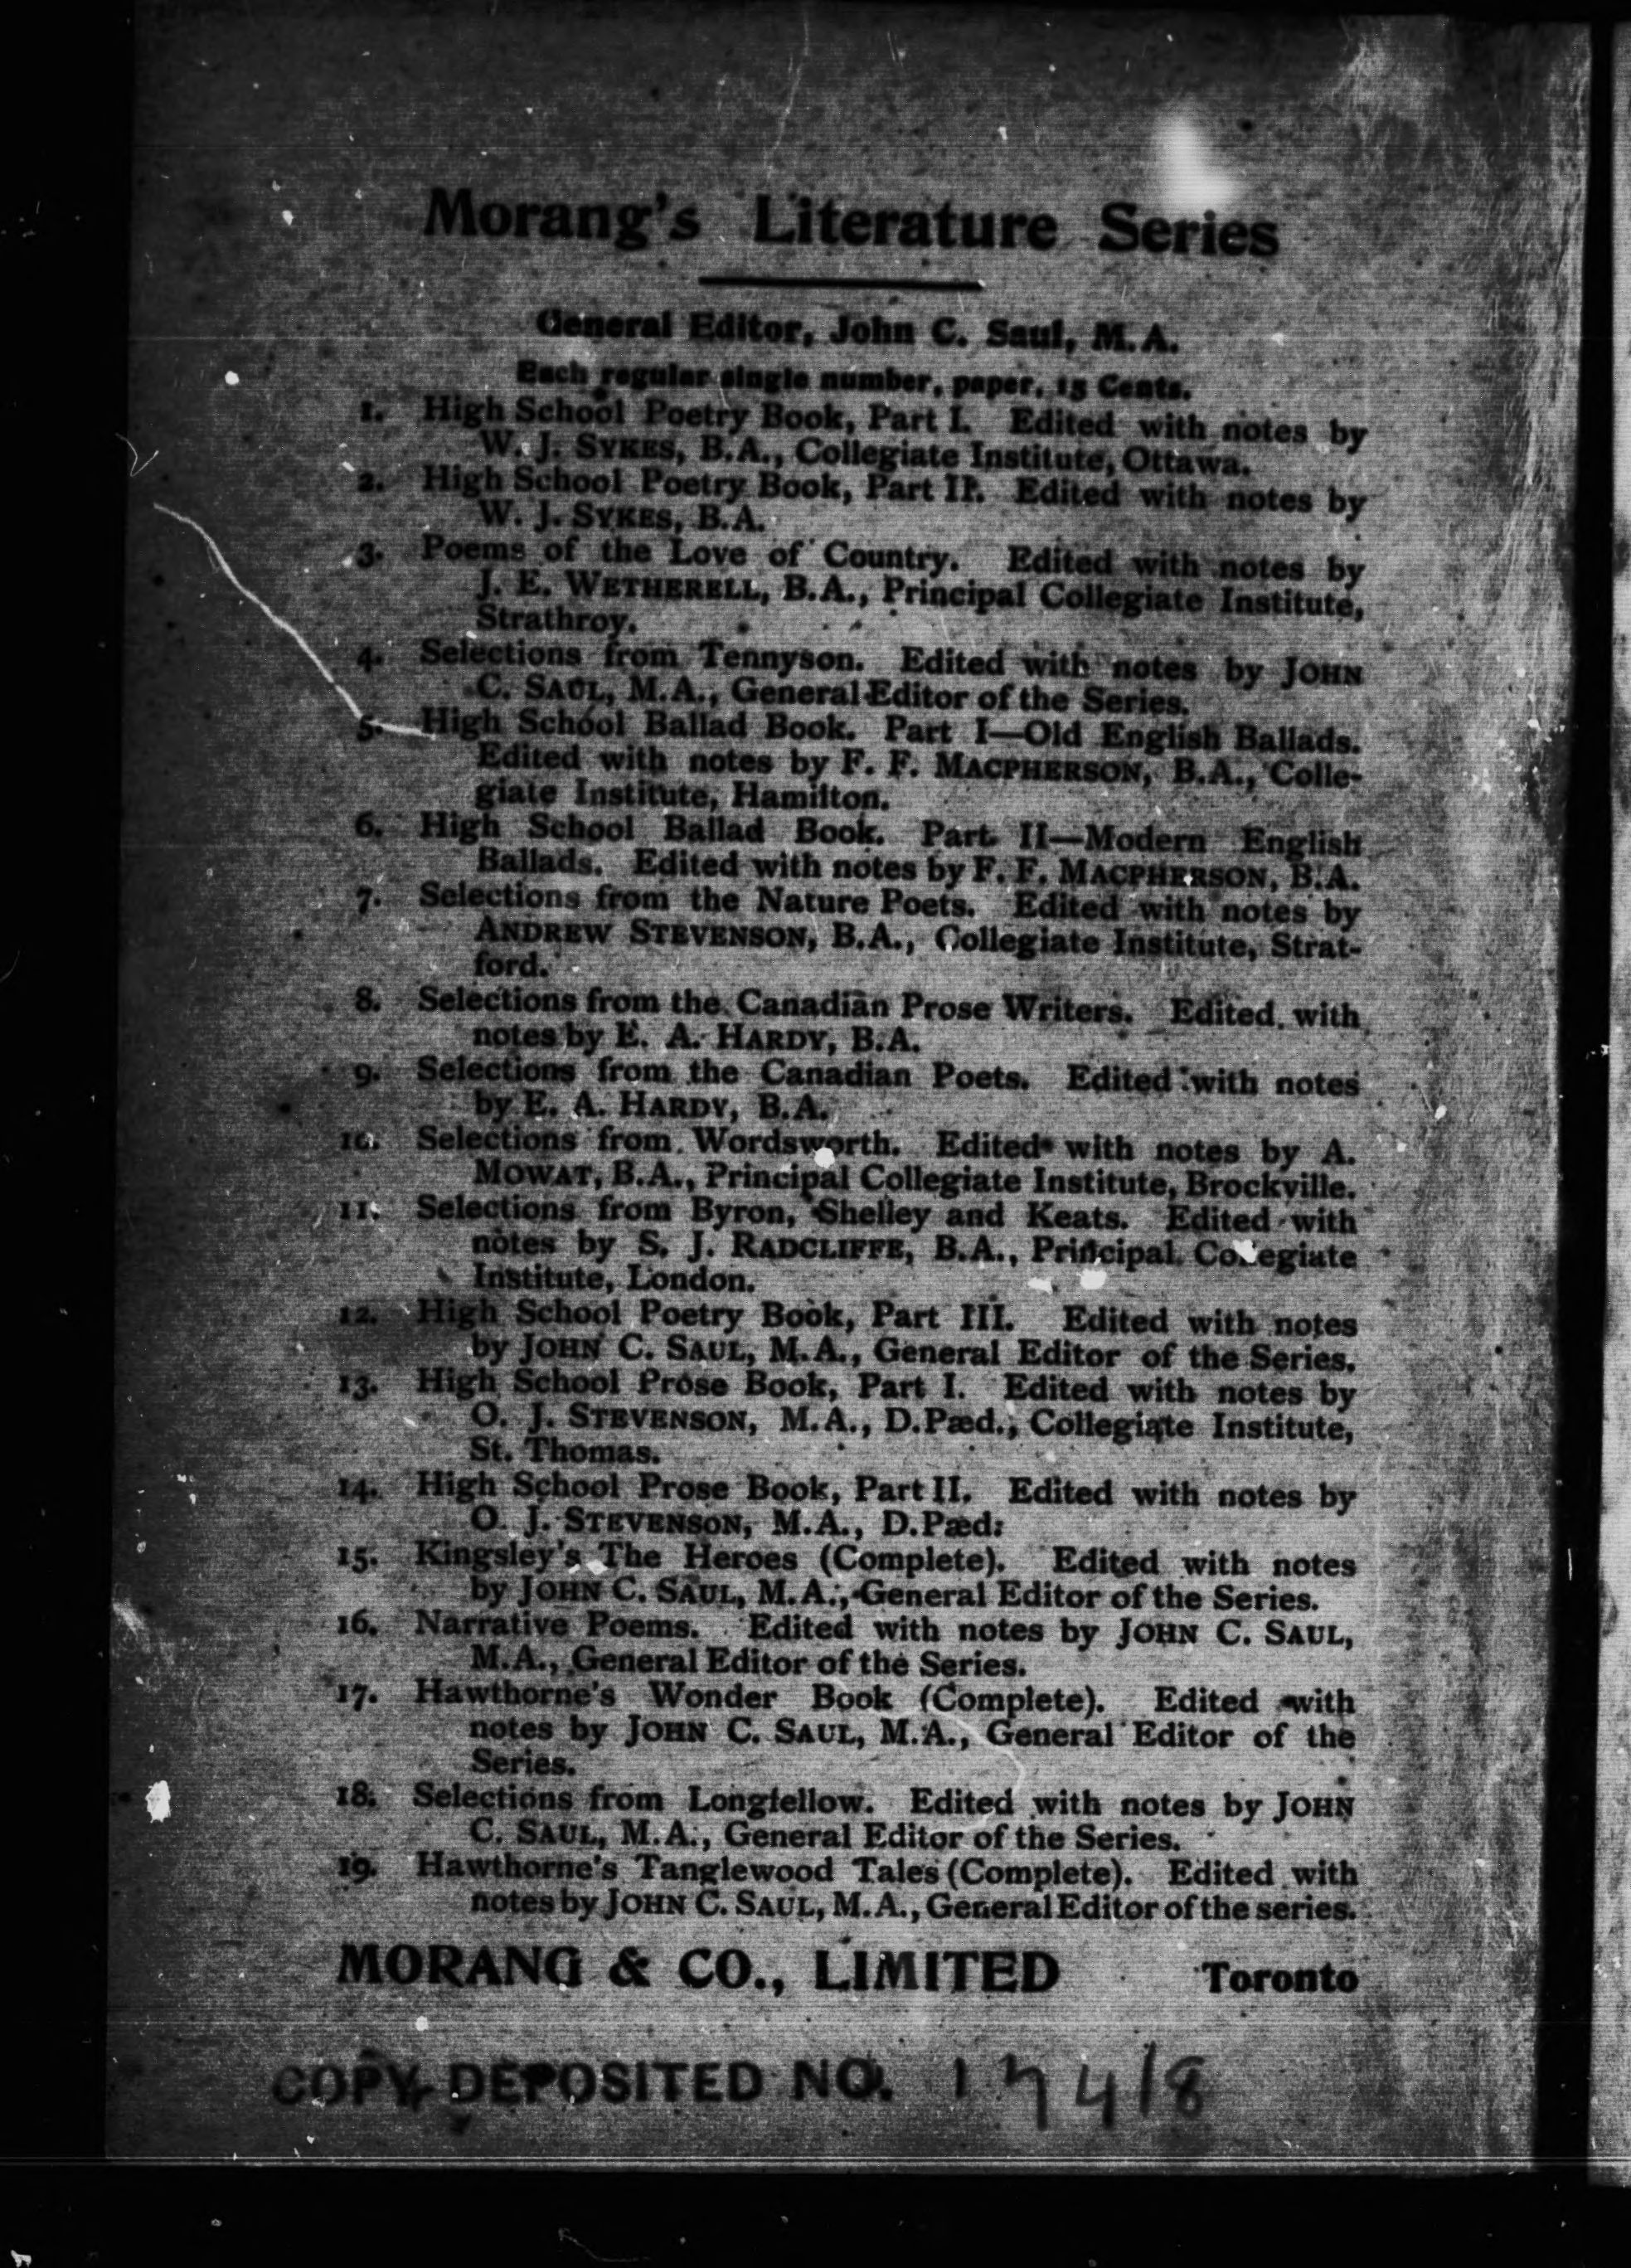 Morang's Literature Series
General Editor, John C. Saul, M.A.
Each regular single number, paper, 15 Cents.
1. High School Poetry Book, Part I. Edited with notes by
W. J. SYKES, B.A., Collegiate Institute, Ottawa.
2. High School Poetry Book, Part II. Edited with notes by
W. J. SYKES, B.A.
3. Poems of the Love of Country. Edited with notes by
J. E. WETHERELL, B.A., Principal Collegiate Institute,
Strathroy.
4. Selections from Tennyson. Edited with notes by JOHN
C. SAUL, M.A., General Editor of the Series.
5. High School Ballad Book. Part I—Old English Ballads.
Edited with notes by F. F. MACPHERSON, B.A., Colle-
giate Institute, Hamilton.
6. High School Ballad Book. Part II—Modern English
Ballads. Edited with notes by F. F. MACPHERSON, B.A.
7. Selections from the Nature Poets. Edited with notes by
ANDREW STEVENSON, B.A., Collegiate Institute, Strat-
ford.
8. Selections from the Canadian Prose Writers. Edited with
notes by E. A. HARDY, B.A.
9. Selections from the Canadian Poets. Edited with notes
by E. A. HARDY, B.A.
10. Selections from Wordsworth. Edited with notes by A.
MOWAT, B.A., Principal Collegiate Institute, Brockville.
11. Selections from Byron, Shelley and Keats. Edited with
notes by S. J. RADCLIFFE, B.A., Principal Collegiate
Institute, London.
12. High School Poetry Book, Part III. Edited with notes
by JOHN C. SAUL, M.A., General Editor of the Series.
13. High School Prose Book, Part I. Edited with notes by
O. J. STEVENSON, M.A., D.Pæd., Collegiate Institute,
St. Thomas.
14. High School Prose Book, Part II. Edited with notes by
O. J. STEVENSON, M.A., D.Pæd.
15. Kingsley's The Heroes (Complete). Edited with notes
by JOHN C. SAUL, M.A., General Editor of the Series.
16. Narrative Poems. Edited with notes by JOHN C. SAUL,
M.A., General Editor of the Series.
17. Hawthorne's Wonder Book (Complete). Edited with
notes by JOHN C. SAUL, M.A., General Editor of the
Series.
18. Selections from Longfellow. Edited with notes by JOHN
C. SAUL, M.A., General Editor of the Series.
19. Hawthorne's Tanglewood Tales (Complete). Edited with
notes by JOHN C. SAUL, M.A., General Editor of the series.
MORANG & CO., LIMITED Toronto
COPY DEPOSITED NO. 17418